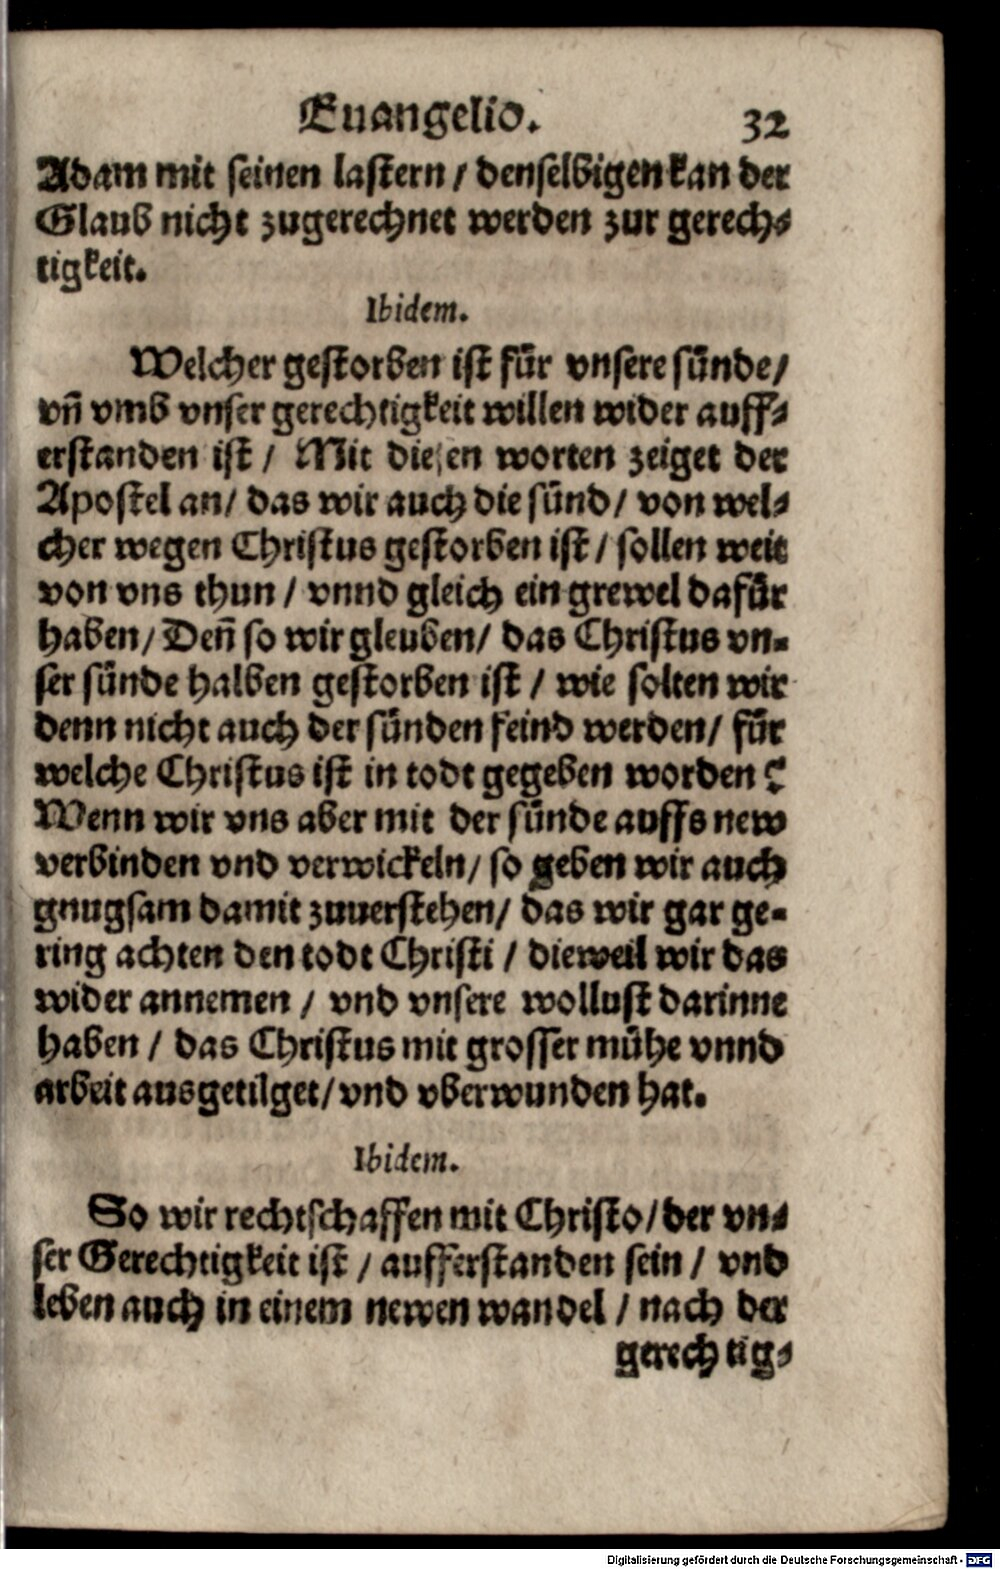 Euangelio. 32
Adam mit seinen lastern / denselbigen kan der
Glaub nicht zugerechnet werden zur gerech⸗
tigkeit.
Ibidem.
Welcher gestorben ist fuͤr vnsere suͤnde /
vñ vmb vnser gerechtigkeit willen wider auff⸗
erstanden ist / Mit diesen worten zeiget der
Apostel an / das wir auch die suͤnd / von wel⸗
cher wegen Christus gestorben ist / sollen weit
von vns thun / vnnd gleich ein grewel dafuͤr
haben / Deñ so wir gleuben / das Christus vn⸗
ser suͤnde halben gestorben ist / wie solten wir
denn nicht auch der suͤnden feind werden / fuͤr
welche Christus ist in todt gegeben worden?
Wenn wir vns aber mit der suͤnde auffs new
verbinden vnd verwickeln / so geben wir auch
gnugsam damit zuuerstehen / das wir gar ge⸗
ring achten den todt Christi / dieweil wir das
wider annemen / vnd vnsere wollust darinne
haben / das Christus mit grosser muͤhe vnnd
arbeit ausgetilget / vnd vberwunden hat.
Ibidem.
So wir rechtschaffen mit Christo / der vn⸗
ser Gerechtigkeit ist / aufferstanden sein / vnd
leben auch in einem newen wandel / nach der
gerechtig⸗
Digitalisierung gefördert durch die Deutsche Forschungsgemeinschaft - DFG